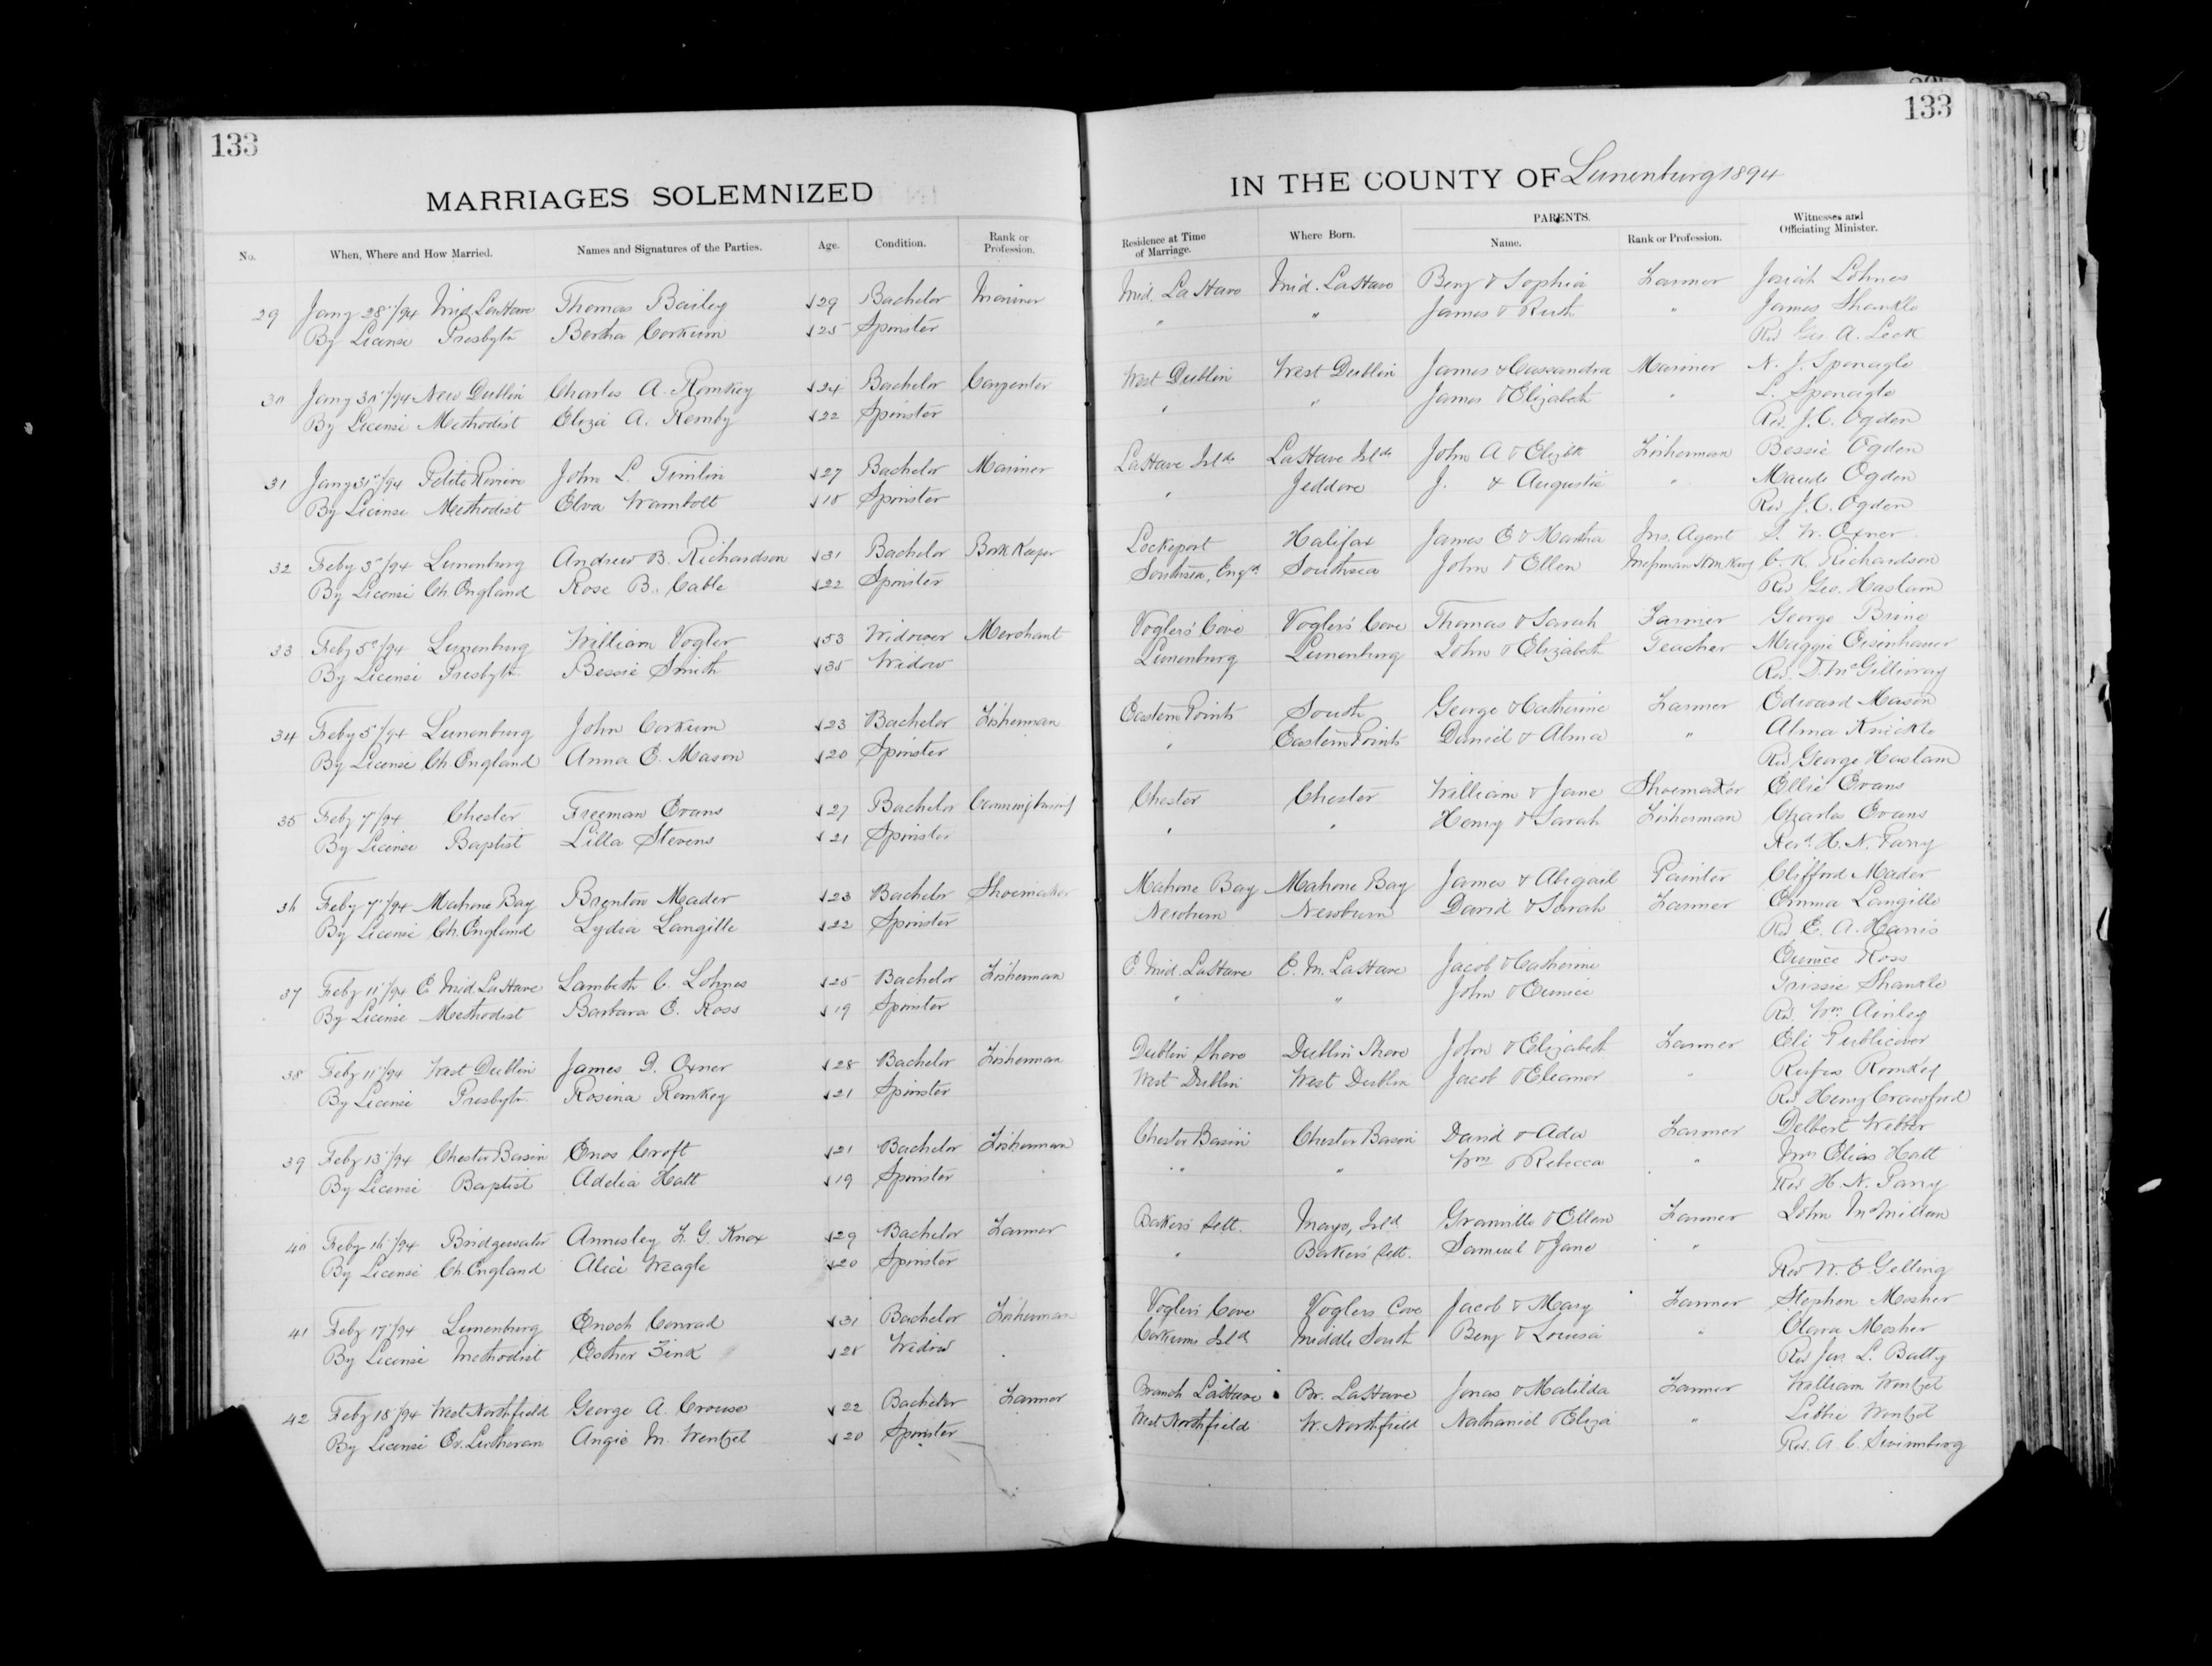 133
133
MARRIAGES SOLEMNIZED IN THE COUNTY OF Lunenburg 1894
No. When, Where and How Married. Names and Signatures of the Parties. Age. Condition. Rank or Profession. Residence at Time of Marriage. Where Born. PARENTS. Name. Rank or Profession. Witnesses and Officiating Minister.
29 Jany 28"/94 Mid. LaHave Thomas Bailey 29 Bachelor Mariner Mid. LaHave Mid. LaHave Benj & Sophia Farmer Josiah Lohnes
By License Presbytn Bertha Corkum 25 Spinster " " James & Ruth " James Shankle
Rev Geo. A. Leck
30 Jany 30"/94 New Dublin Charles A. Romkey 24 Bachelor Carpenter West Dublin West Dublin James & Cassandra Mariner N. J. Sponagle
By License Methodist Eliza A. Remby 22 Spinster " " James & Elizabeth " L. Sponagle
Rev. J. C. Ogden
31 Jany 31st/94 Petite Riviere John L. Timlin 27 Bachelor Mariner LaHave Islds LaHave Islds John A & Elizth Fisherman Bessie Ogden
By License Methodist Elva Wambolt 18 Spinster " Jeddore J. & Augustie " Maude Ogden
Rev J. C. Ogden
32 Feby 3"/94 Lunenburg Andrew B. Richardson 31 Bachelor Book Keeper Lockeport Halifax James E & Martha Ins. Agent S. W. Oxner
By License Ch. England Rose B. Cable 22 Spinster Southsea, Engd. Southsea John & Ellen C. K. Richardson
Rev Geo. Haslam
33 Feby 5"/94 Lunenburg William Vogler 53 Widower Merchant Voglers' Cove Voglers' Cove Thomas & Sarah Farmer George Brine
By License Presbytn. Bessie Smith 35 Widow Lunenburg Lunenburg John & Elizabeth Teacher Maggie Eisenhauer
Rev. D. McGillivray
34 Feby 5"/94 Lunenburg John Corkum 23 Bachelor Fisherman Eastern Points South George & Catherine Farmer Edward Mason
By License Ch England Anna E. Mason 20 Spinster " Eastern Points Daniel & Alma " Alma Knickle
Rev George Haslam
35 Feby 7"/94 Chester Freeman Evans 27 Bachelor Chester Chester William & Jane Shoemaker Ellie Evans
By License Baptist Lilla Stevens 21 Spinster " " Henry & Sarah Fisherman Charles Evans
Revd. H. N. Parry
36 Feby 7"/94 Mahone Bay Brenton Mader 23 Bachelor Shoemaker Mahone Bay Mahone Bay James & Abigail Painter Clifford Mader
By License Ch. England Lydia Langille 22 Spinster Newburn Newburn David & Sarah Farmer Emma Langille
Rev E. A. Harris
37 Feby 11"/94 E Mid. LaHave Lambeth C. Lohnes 25 Bachelor Fisherman E Mid. LaHave E. M. LaHave Jacob & Catherine Eunice Ross
By License Methodist Barbara E. Ross 19 Spinster " " John & Eunice Trissie Shankle
Rev. Wm. Ainley
38 Feby 11"/94 West Dublin James D. Oxner 28 Bachelor Fisherman Dublin Shore Dublin Shore John & Elizabeth Farmer Eli Publicover
By License Presbytn Rosina Romkey 21 Spinster West Dublin West Dublin Jacob & Eleanor " Rufus Romkey
Rev Henry Crawford
39 Feby 13"/94 Chester Basin Enos Croft 21 Bachelor Fisherman Chester Basin Chester Basin David & Ada Farmer Delbert Webber
By License Baptist Adelia Hatt 19 Spinster " " " Wm & Rebecca " Mrs Elias Hatt
Rev H. N. Parry
40 Feby 16"/94 Bridgewater Annesley F. G. Knox 29 Bachelor Farmer Bakers' Sett. Mayo, Ireld Granville & Ellen Farmer John McMillan
By License Ch. England Alice Weagle 20 Spinster " Bakers' Sett. Samuel & Jane "
Rev W. E. Gelling
41 Feby 17"/94 Lunenburg Enoch Conrad 31 Bachelor Fisherman Voglers' Cove Voglers Cove Jacob & Mary Farmer Stephen Mosher
By License Methodist Esther Zink 28 Widow Corkums Isld Middle South Benj & Louisa " Clara Mosher
Rev Jas L. Batty
42 Feby 18"/94 West Northfield George A. Crouse 22 Bachelor Farmer Branch LaHave Br. LaHave Jonas & Matilda Farmer William Wentzel
By License Ev. Lutheran Angie M. Wentzel 20 Spinster West Northfield W. Northfield Nathaniel & Eliza " Libbie Wentzel
Rev. A. C. Swimburg